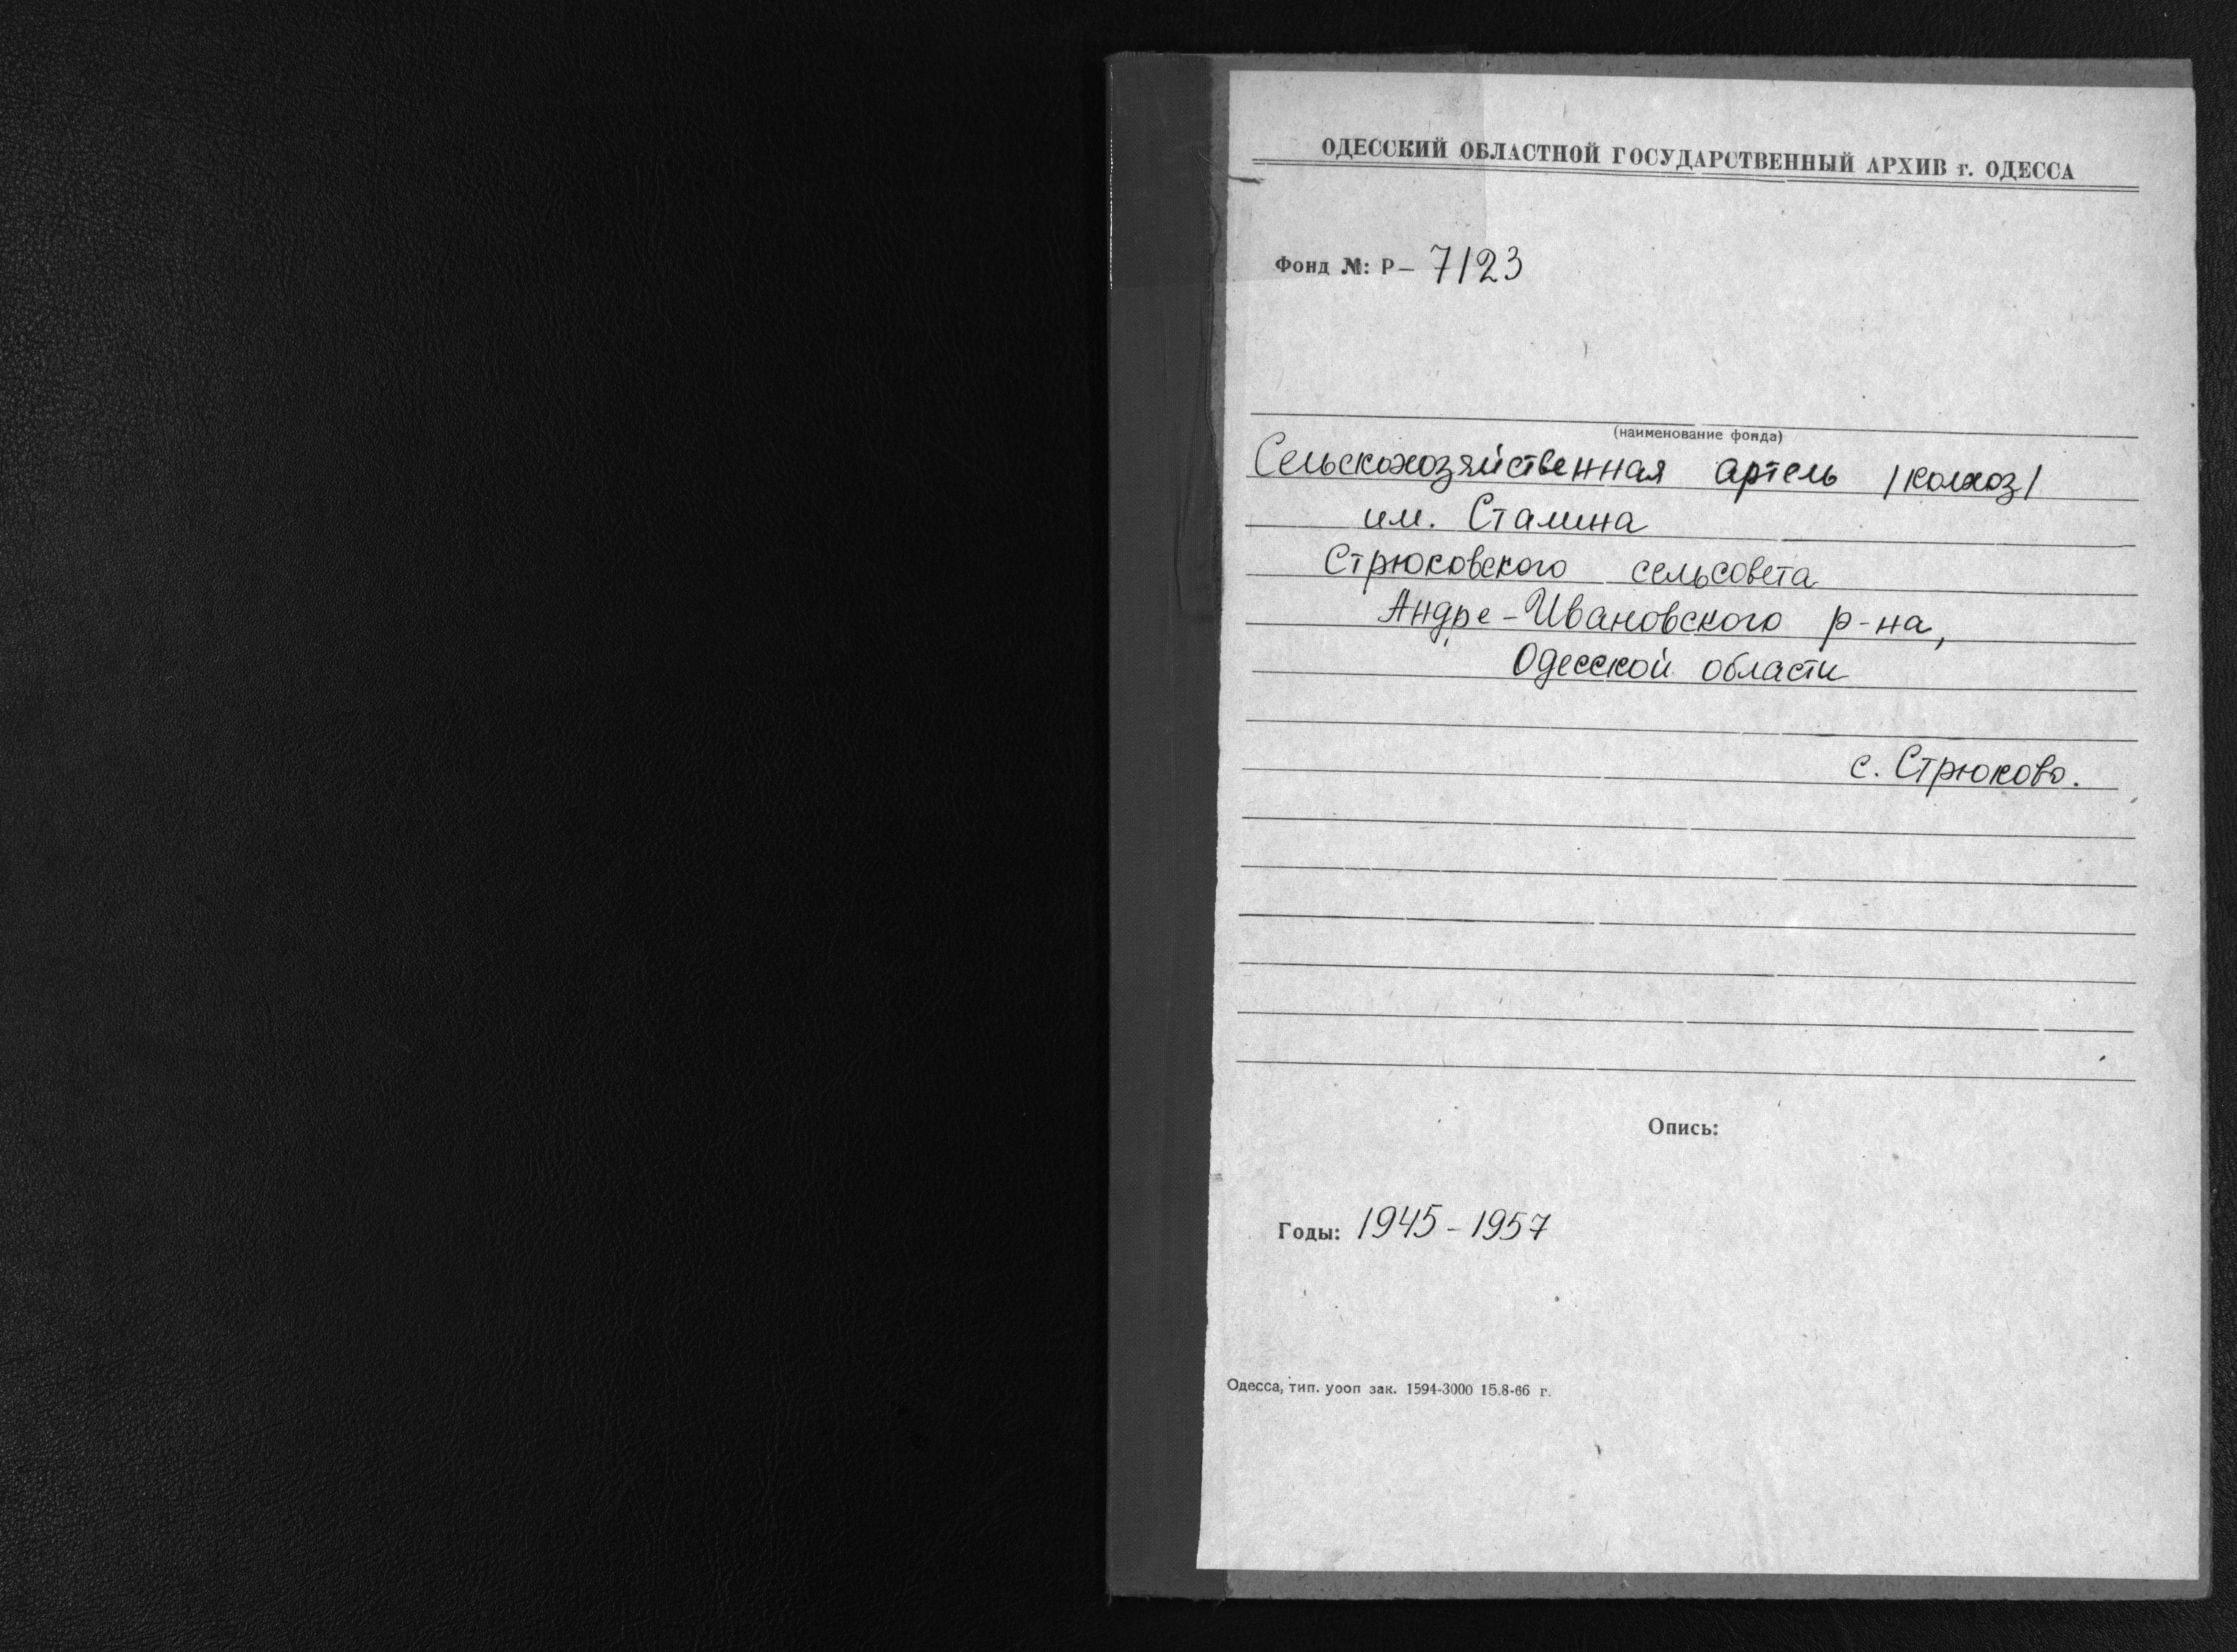 ОДЕССКИЙ ОБЛАСТНОЙ ГОСУДАРСТВЕННЫЙ АРХИВ г. ОДЕССА
Фонд №: Р– 7123
(наименование фонда)
Сельскохозяйственная артель /колхоз/
им. Сталина
Стрюковского сельсовета
Андре-Ивановского р-на,
Одесской области
с. Стрюково.
Опись:
Годы: 1945-1957
Одесса, тип. уооп зак. 1594-3000 15.8-66 г.